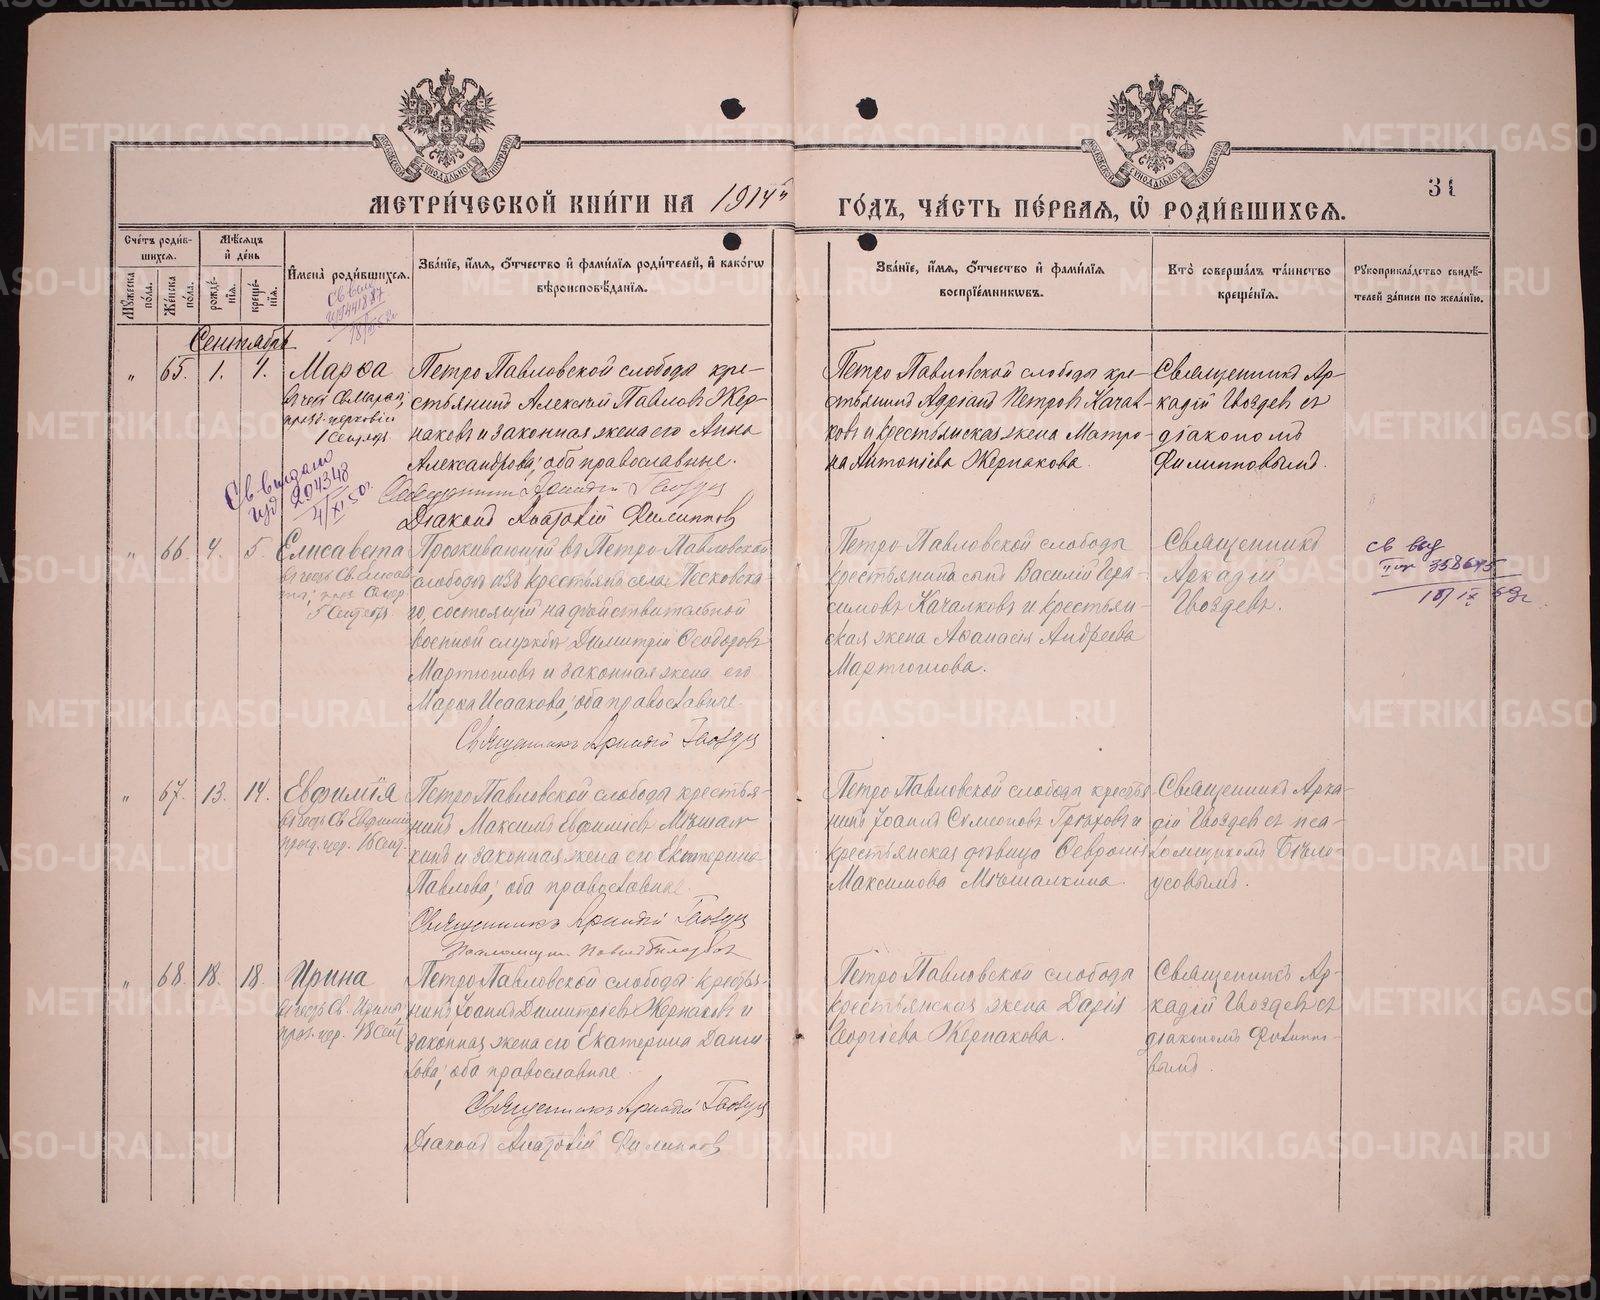 МЕТРИ́ЧЕСКОЙ КНИ́ГИ НА 1914й
ГО́ДЪ, ЧА́СТЬ ПЕ́РВАЯ, Ѿ РОДИ́ВШИХСѦ.
31
Сче́тъ роди́вшихся.
Му́жеска по́ла.
Же́нска по́ла.
Мѣ́сяцъ и де́нь
рожде́нія.
креще́нія.
Имена̀ роди́вшихся.
Зва́ніе, и́мя, о́тчество и фами́лія роди́телей, и како́гѡ
вѣроисповѣ́данія.
Зва́ніе, и́мя, о́тчество и фами́лія
воспріе́мниковъ.
Кто̀ соверша́лъ та́инство
креще́нія.
Рукоприкла́дство свидѣ́телей за́писи по жела́нію.
Сентябрь
" 65. 1. 1. Марѳа
въ честь Св. Марѳы,
празд. церковію
1 Сентября
Петро Павловской слободы кре-
стьянинъ Алексѣй Павловъ Жер-
наковъ и законная жена его Анна
Александрова; оба православные.
Священникъ Аркадій Гвоздев
Діаконъ Анатолій Филиппов
Петро Павловской слободы кре-
стьянинъ Адріанъ Петровъ Качал-
ковъ и крестьянская жена Матро-
на Антоніева Жернакова.
Священникъ Ар-
кадій Гвоздевъ съ
діакономъ
Филипповымъ.
Св выдано
204348
4/XI 50г.
" 66. 4. 5. Елисавета
въ честь Св. Елисаве-
ты; празд. церк.
5 Сентября
Проживающій въ Петро-Павловской
слободѣ изъ крестьянъ села Песковска-
го, состоящій на дѣйствительной
военной службѣ Димитрій Ѳеодоровъ
Мартюшовъ и законная жена его
Марѳа Исаакова; оба православные
Священникъ Аркадій Гвоздев
Петро Павловской слободы
крестьянинъ сынъ Василій Гера-
симовъ Качалковъ и крестьян-
ская жена Аѳанасія Андреева
Мартюшова.
Священникъ
Аркадій
Гвоздевъ.
св выд
358645
" 67. 13. 14. Евфимія
въ честь Св. Евфиміи
празд. цер. 16 Сент.
Петро Павловской слободы крестья-
нинъ Максимъ Евфиміевъ Мѣшал-
кинъ и законная жена его Екатерина
Павлова; оба православные.
Священникъ Аркадій Гвоздев
Псаломщик Павел Белоусов
Петро Павловской слободы крестья
нинъ Іоаннъ Симеоновъ Грѣховъ и
крестьянская дѣвица Ѳевронія
Максимова Мѣшалкина.
Священникъ Арка-
дій Гвоздевъ съ пса-
ломщикомъ Бѣло-
усовымъ.
" 68. 18. 18. Ирина
въ честь Св. Ирины
празд. цер. 18 Сент
Петро-Павловской слободы крестья-
нинъ Іоаннъ Димитріевъ Жернаковъ и
законная жена его Екатерина Дани-
лова; оба православные.
Священникъ Аркадій Гвоздев
Діаконъ Анатолій Филиппов
Петро Павловской слободы
крестьянская жена Дарія
Георгіева Жернакова.
Священникъ Ар-
кадій Гвоздевъ съ
діакономъ Филиппо-
вымъ.
METRIKI.GASO-URAL.RU